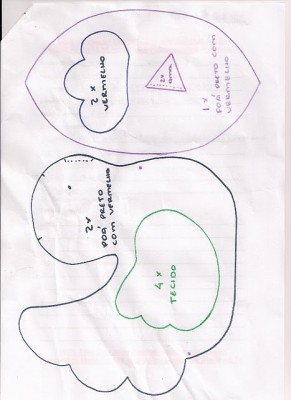 2 x
VERMELHO
2x
1 x
POÁ PRETO COM
VERMELHO
2x
POÁ PRETO
COM VERMELHO
4 x
TECIDO